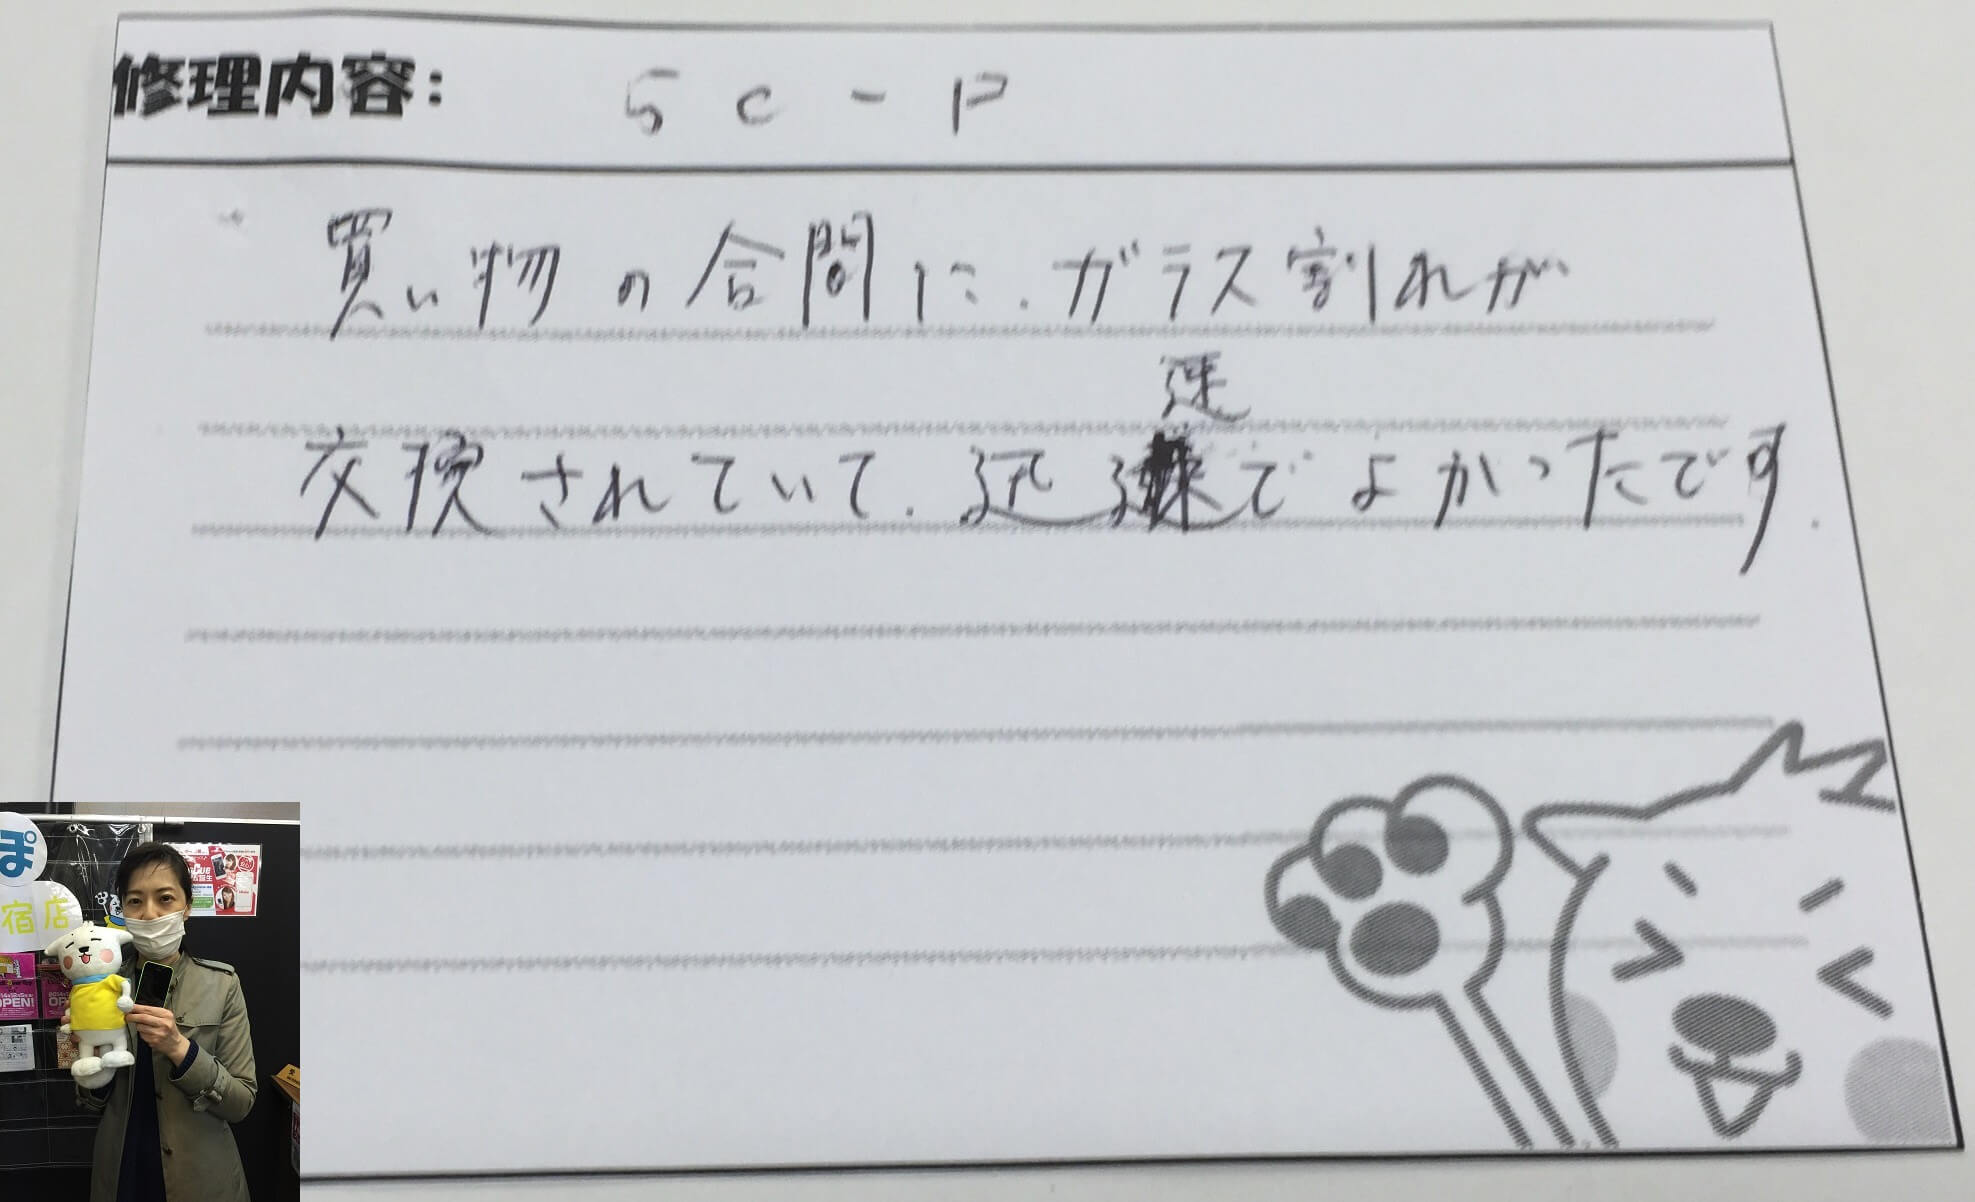 修理内容: 5c-P
買い物の合間に、ガラス割れが
交換されていて、迅速でよかったです。
ぽ
宿店
OPEN!